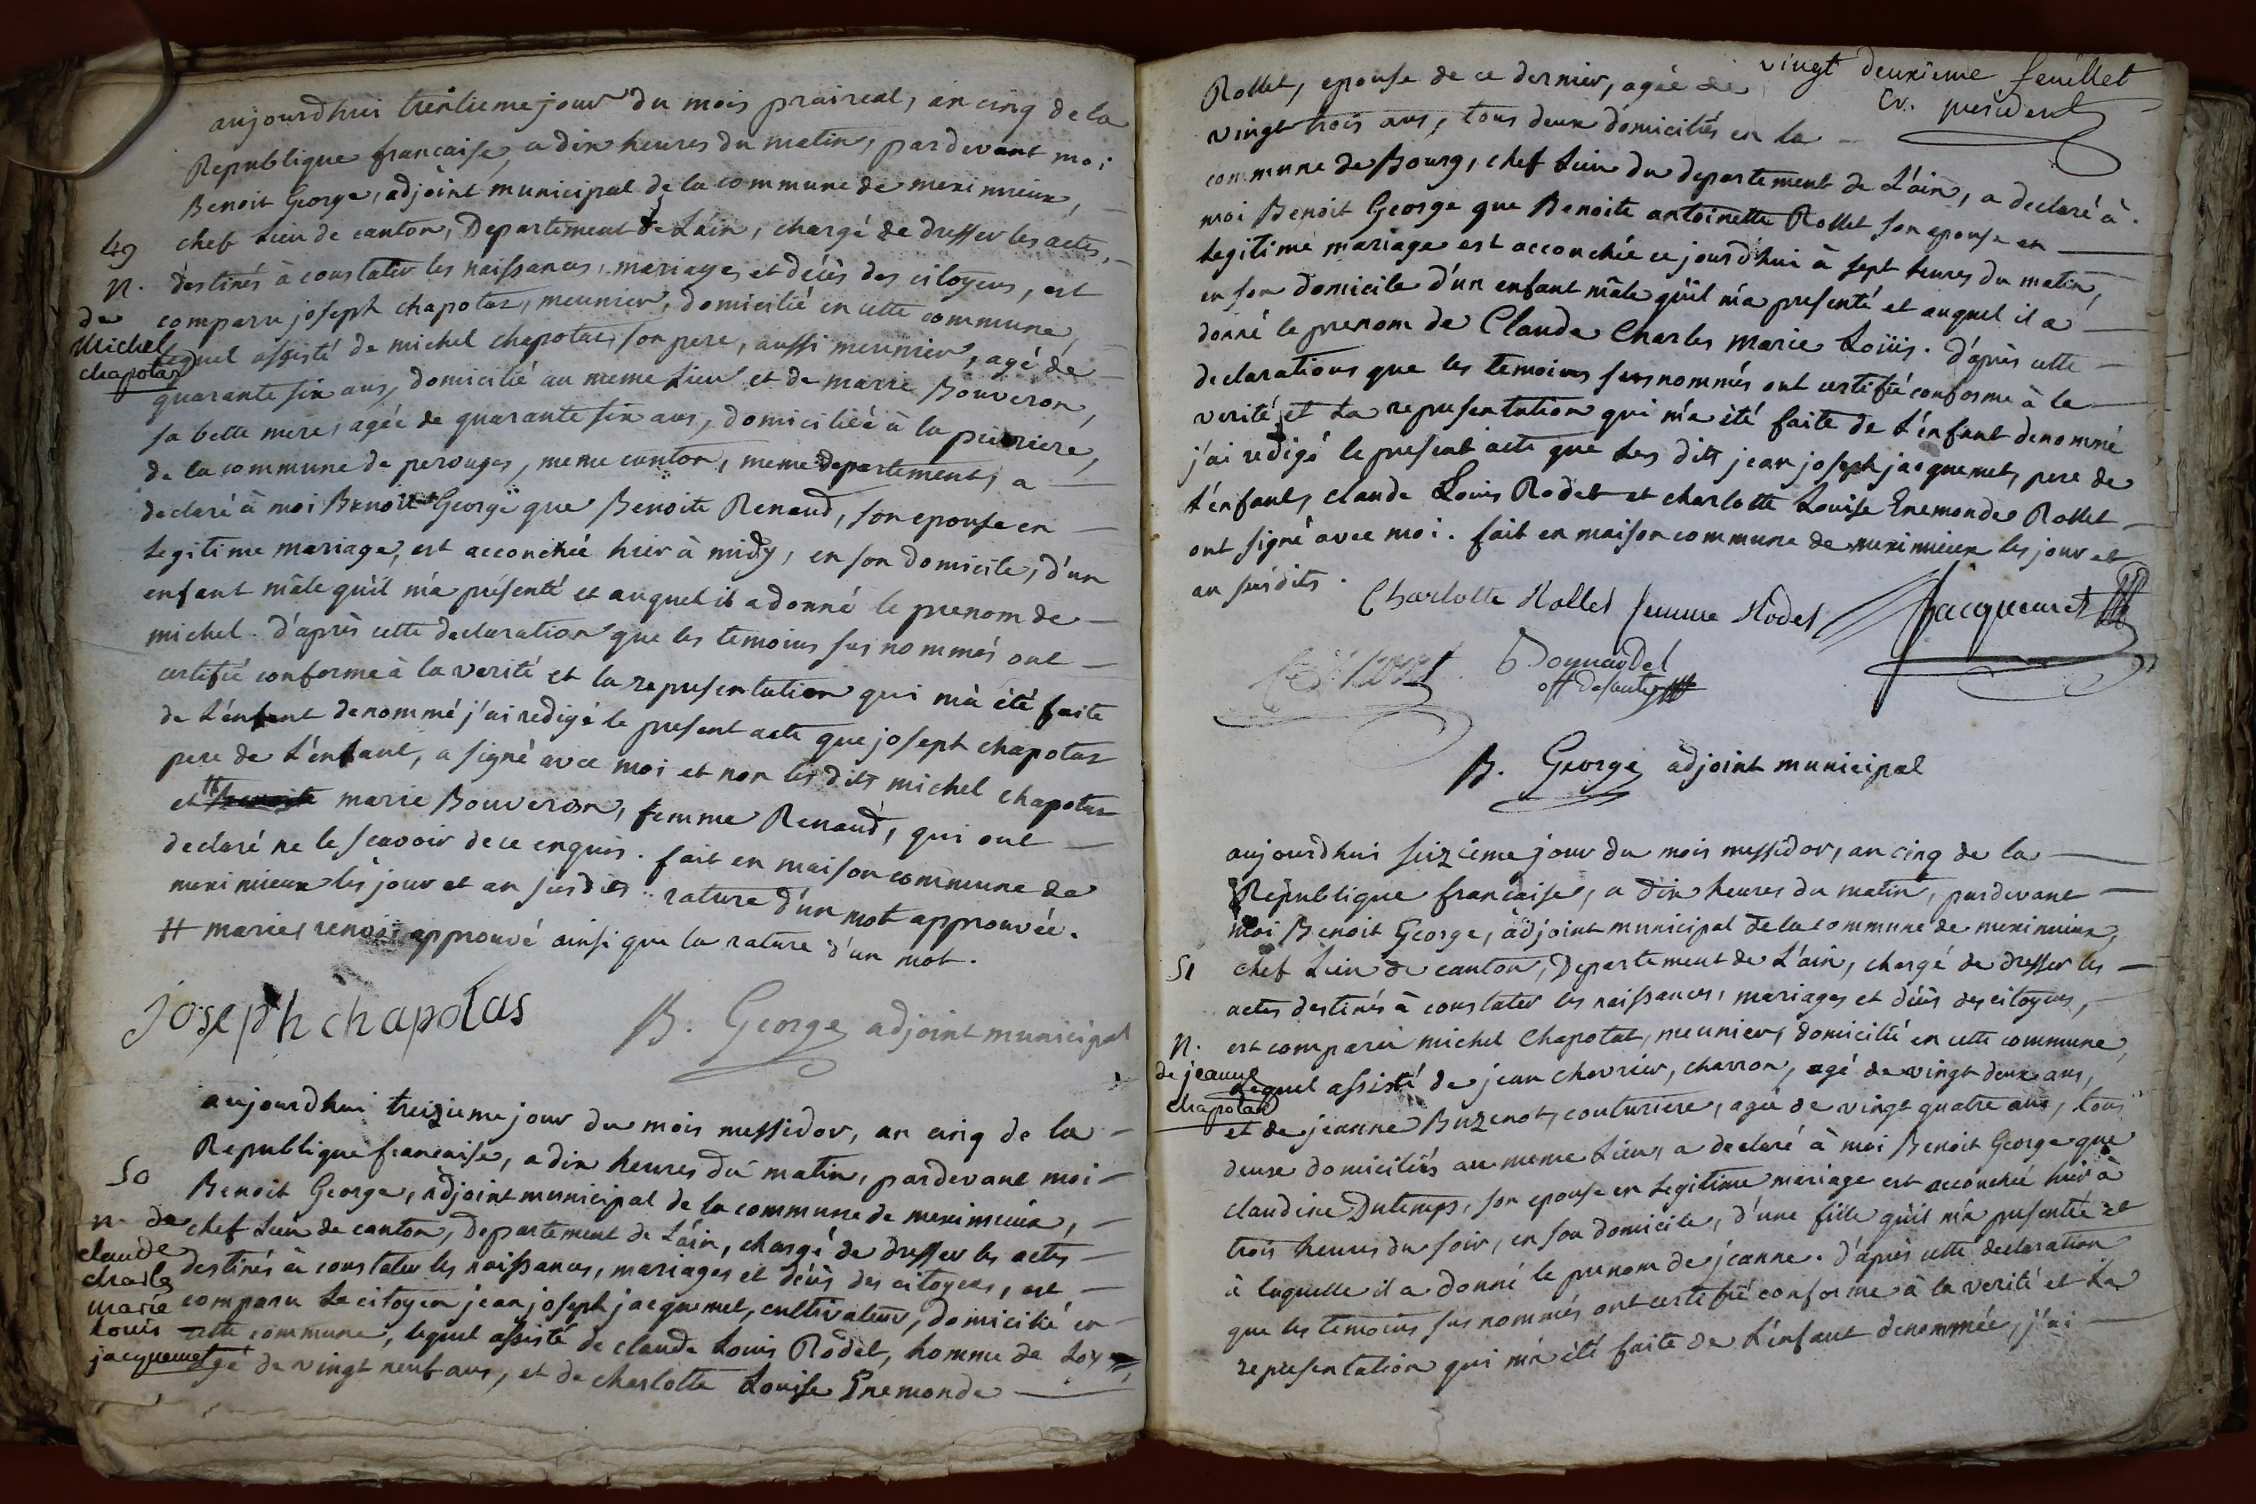 aujourdhui trentieme jour du mois praireal, an cinq de la
Republique francaise, a dix heures du matin, pardevant moi
Benoit George, adjoint municipal de la commune de meximieux,
49
chef lieu de canton, Departement de L'ain, chargé de dresser les actes,
n. destinés à constater les naissances, mariages et décès des citoyens, est
de
comparu joseph chapotas, meunier, domicilié en cette commune,
Michel
chapotas
lequel assisté de michel chapotas, son pere, aussi meunier, agé de
quarante six ans, domicilié au meme Lieu et de marie Bouveron,
sa belle mere, agée de quarante six ans, domiciliée à la
de la commune de perouges, meme canton, meme departement, a
declaré à moi Benoit George que Benoite Renaud, son epouse en
Legitime mariage, est accouchée hier à midy, en son domicile, d'un
enfant mâle qu'il m'a présenté et auquel il a donné le prenom de
michel. d'après cette declaration que les temoins sus nommés ont
certifié conforme à la verité et la representation qui m'a été faite
de L'enfant denommé j'ai redigé le present acte que joseph chapotas
pere de L'enfant, a signé avec moi et non les dits michel chapotas
et # marie Bouveron, femme Renaud, qui ont
declaré ne le scavoir de ce enquis. fait en maison commune de
meximieux les jour et an susdits. rature d'un mot approuvée.
# marie, renvoi approuvé ainsi que la rature d'un mot.
Joseph chapotas
B. George adjoint municipal
aujourdhui treizieme jour du mois messidor, an cinq de la
Republique francaise, a dix heures du matin, pardevant moi
50
Benoit George, adjoint municipal de la commune de meximieux,
n. de
chef Lieu de canton, Departement de L'ain, chargé de dresser les actes
claude
destinés à constater les naissances, mariages et décès des citoyens, est
charles
marie
comparu Le citoyen jean joseph jacquemet, cultivateur, domicilié en
Louis
cette commune, lequel assisté de claude Louis Rodet, homme de Loy,
jacquemet
agé de vingt neuf ans, et de charlotte Louise Enemonde
vingt deuxieme feuillet
president
Rollet, epouse de ce dernier, agée de
vingt trois ans, tous deux domiciliés en la
commune de Bourg, chef Lieu du departement de L'ain, a declaré à
moi Benoit George que Benoite antoinette Rollet son epouse en
Legitime mariage est accouchée ce jourd'hui à sept heures du matin,
en son domicile d'un enfant mâle qu'il m'a presenté et auquel il a
donné le prenom de Claude Charles marie Loüis. d'après cette
declarations que les temoins susnommés ont certifié conforme à la
verité et La representation qui m'a été faite de L'enfant denommé
j'ai redigé le present acte que Les dits jean joseph jacquemet, pere de
L'enfant, claude Louis Rodet et charlotte Louise Enemonde Rollet
ont signé avec moi. fait en maison commune de meximieux les jour et
an susdits.
Charlotte Rollet femme Rodet
Jacquemet
B. George adjoint municipal
aujourdhui seizieme jour du mois messidor, an cinq de la
Republique francaise, a dix heures du matin, pardevant
moi Benoit George, adjoint municipal de la commune de meximieux,
51
chef Lieu de canton, Departement de L'ain, chargé de dresser les
actes destinés à constater les naissances, mariages et décès des citoyens,
n.
est comparu michel Chapotat, meunier, domicilié en cette commune,
de jeanne
chapotas
Lequel assisté de jean chevrier, charron, agé de vingt deux ans,
et de jeanne Buzenot, couturiere, agée de vingt quatre ans, tous
deux domiciliés au meme Lieu, a declaré à moi Benoit George que
claudine Dutemps, son epouse en Legitime mariage est accouchée hier à
trois heures du soir, en son domicile, d'une fille qu'il m'a presentée et
à laquelle il a donné le prenom de jeanne. d'après cette declaration
que les temoins sus nommés ont certifié conforme à la verité et La
representation qui m'a été faite de L'enfant denommée, j'ai